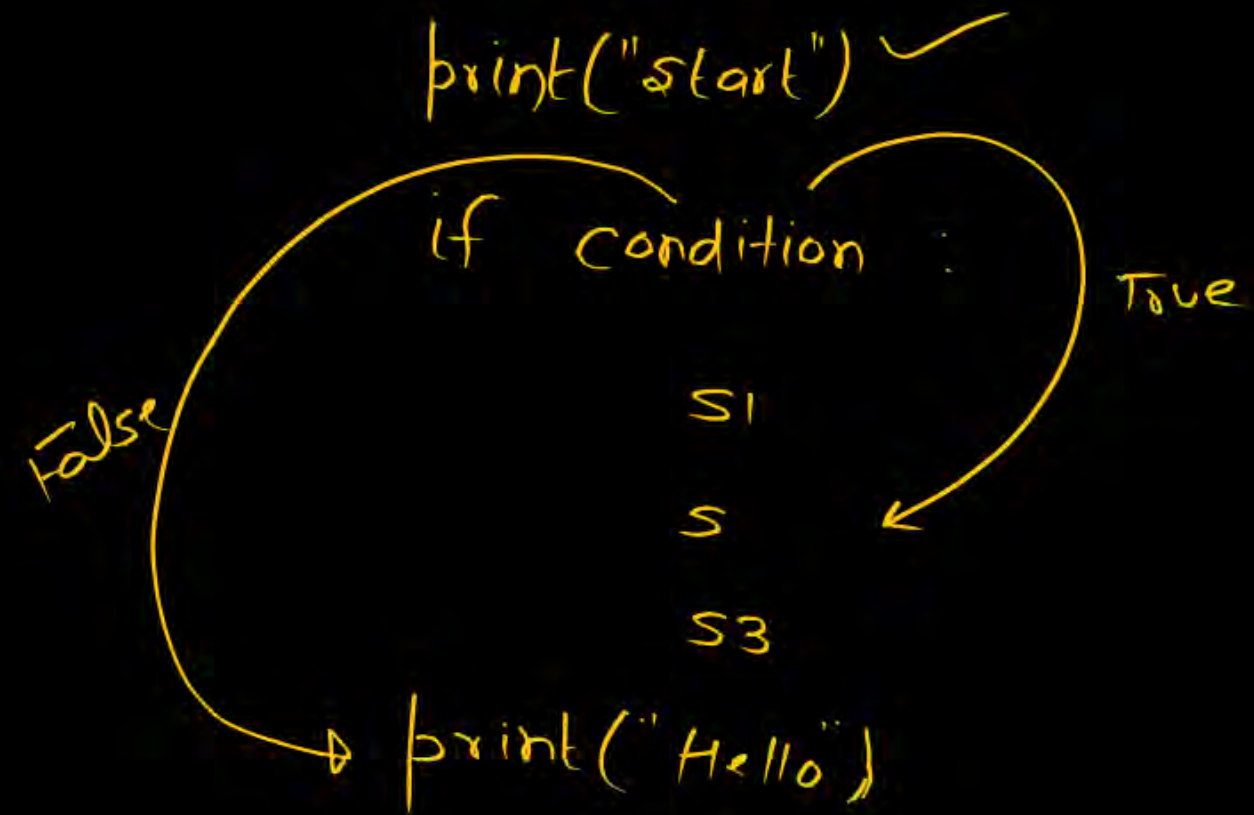 print("start")
if condition :
True
S1
False
S
S3
print("Hello")